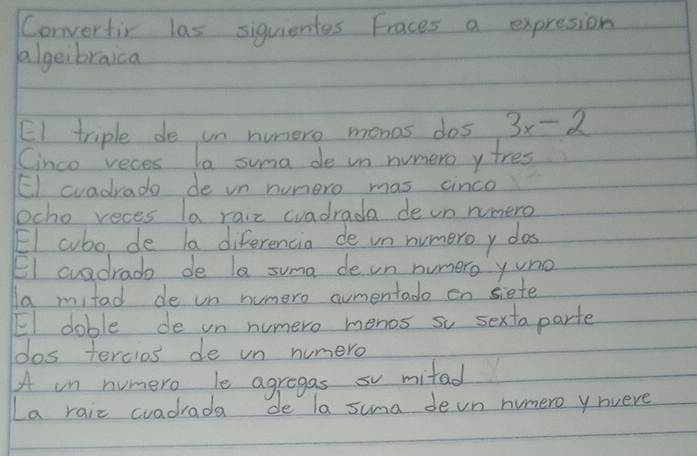 Convertir las siguientes Fraces a expresion
algeibraica
El triple de un numero menos dos 3x-2
Cinco veces la suma de un numero y tres
El cuadrado de un numero mas cinco
ocho veces la raiz cuadrada de un numero
El cubo de la diferencia de un numero y dos
El cuadrado de la suma de un numero y uno
la mitad de un numero aumentado en siete
El doble de un numero menos su sexta parte
dos tercios de un numero
A un numero le agregas su mitad
La raiz cuadrada de la suma de un numero y nueve